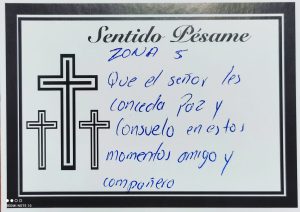 Sentido Pésame
ZONA 5
Que el señor les
conceda Paz y
Consuelo en estos
momentos amigo y
compañero